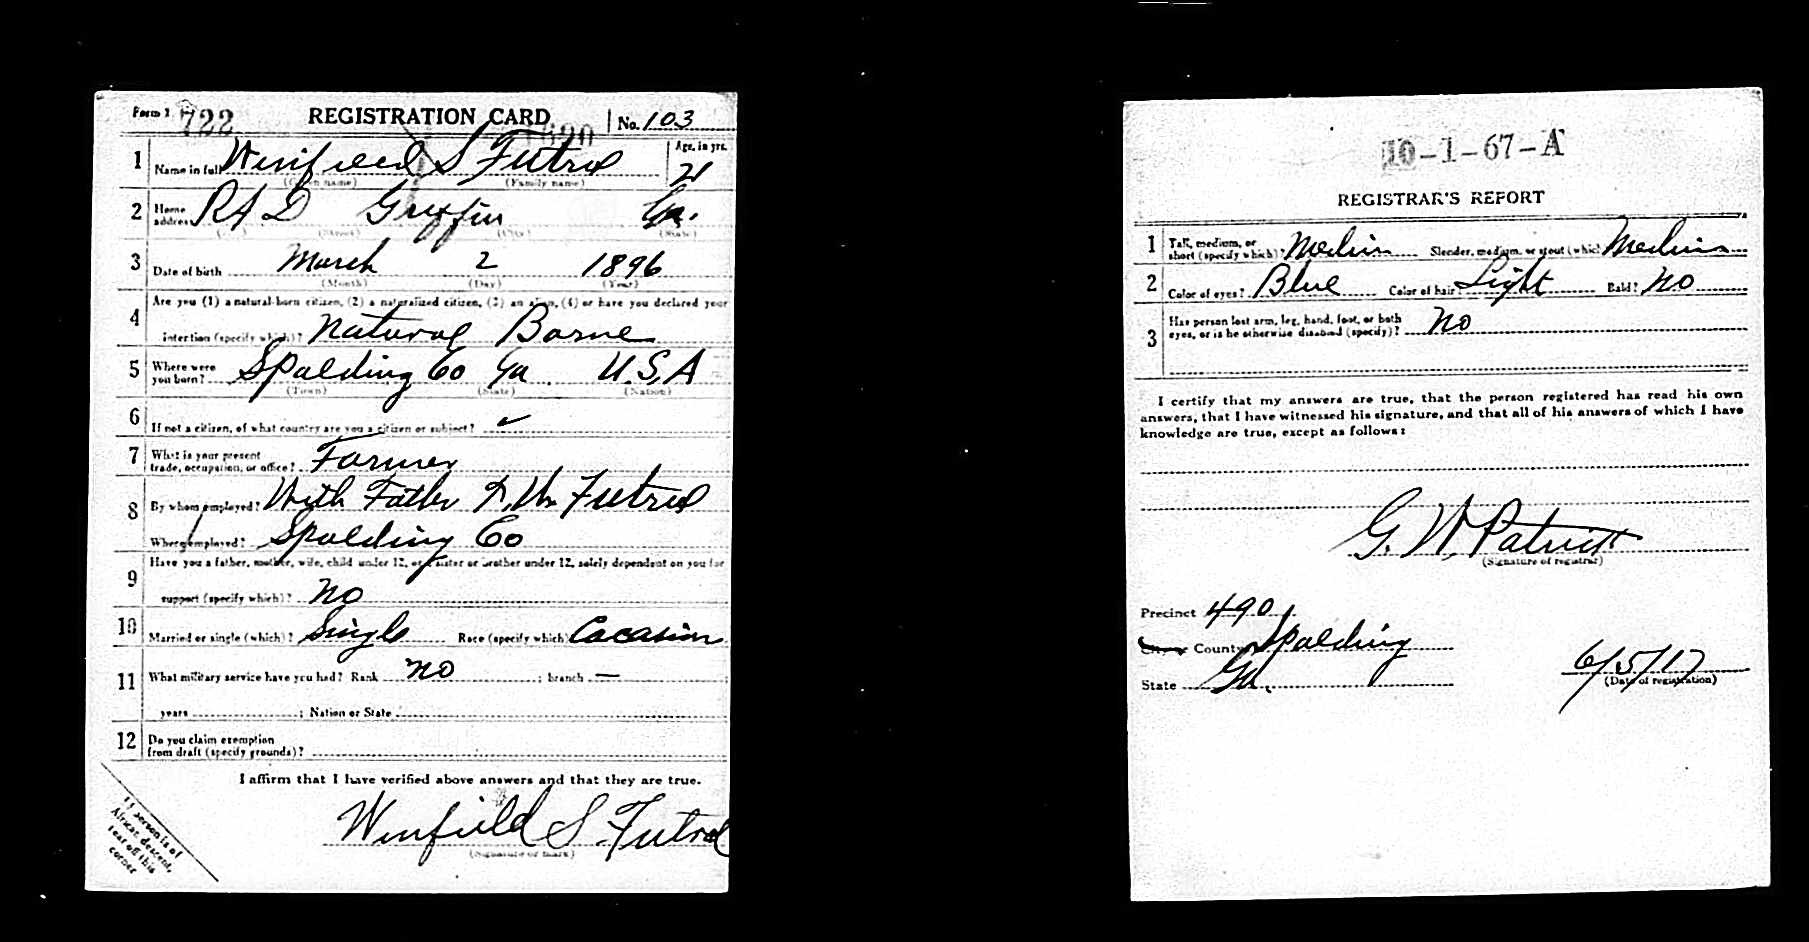 Form 1 722 REGISTRATION CARD No. 103
1 Name in full Winifreed S Futrel Age, in yrs. 21
(Given name) (Family name)
2 Home address RFD Griffin Ga.
(Street) (City) (State)
3 Date of birth March 2 1896
(Month) (Day) (Year)
4 Are you (1) a natural-born citizen, (2) a naturalized citizen, (3) an alien, (4) or have you declared your
intention (specify which)? Natural Borne
5 Where were you born? Spalding Co Ga U.S.A
(Town) (State) (Nation)
6 If not a citizen, of what country are you a citizen or subject? ✓
7 What is your present trade, occupation, or office? Farmer
8 By whom employed? With Father Futrel
Where employed? Spalding Co
9 Have you a father, mother, wife, child under 12, or a sister or brother under 12, solely dependent on you for
support (specify which)? No
10 Married or single (which)? Single Race (specify which) Cacasion
11 What military service have you had? Rank No ; branch —
years ; Nation or State
12 Do you claim exemption from draft (specify grounds)?
I affirm that I have verified above answers and that they are true.
Winfield S. Futrel
(Signature or mark)
If person is of
African descent,
tear off this
corner
10-1-67-A
REGISTRAR'S REPORT
1 Tall, medium, or short (specify which)? Medium Slender, medium, or stout (which) Medium
2 Color of eyes? Blue Color of hair? Light Bald? No
3 Has person lost arm, leg, hand, foot, or both
eyes, or is he otherwise disabled (specify)? No
I certify that my answers are true, that the person registered has read his own
answers, that I have witnessed his signature, and that all of his answers of which I have
knowledge are true, except as follows:
G. W. Patrick
(Signature of registrar)
Precinct 490
County Spalding
State Ga. 6/5/17
(Date of registration)